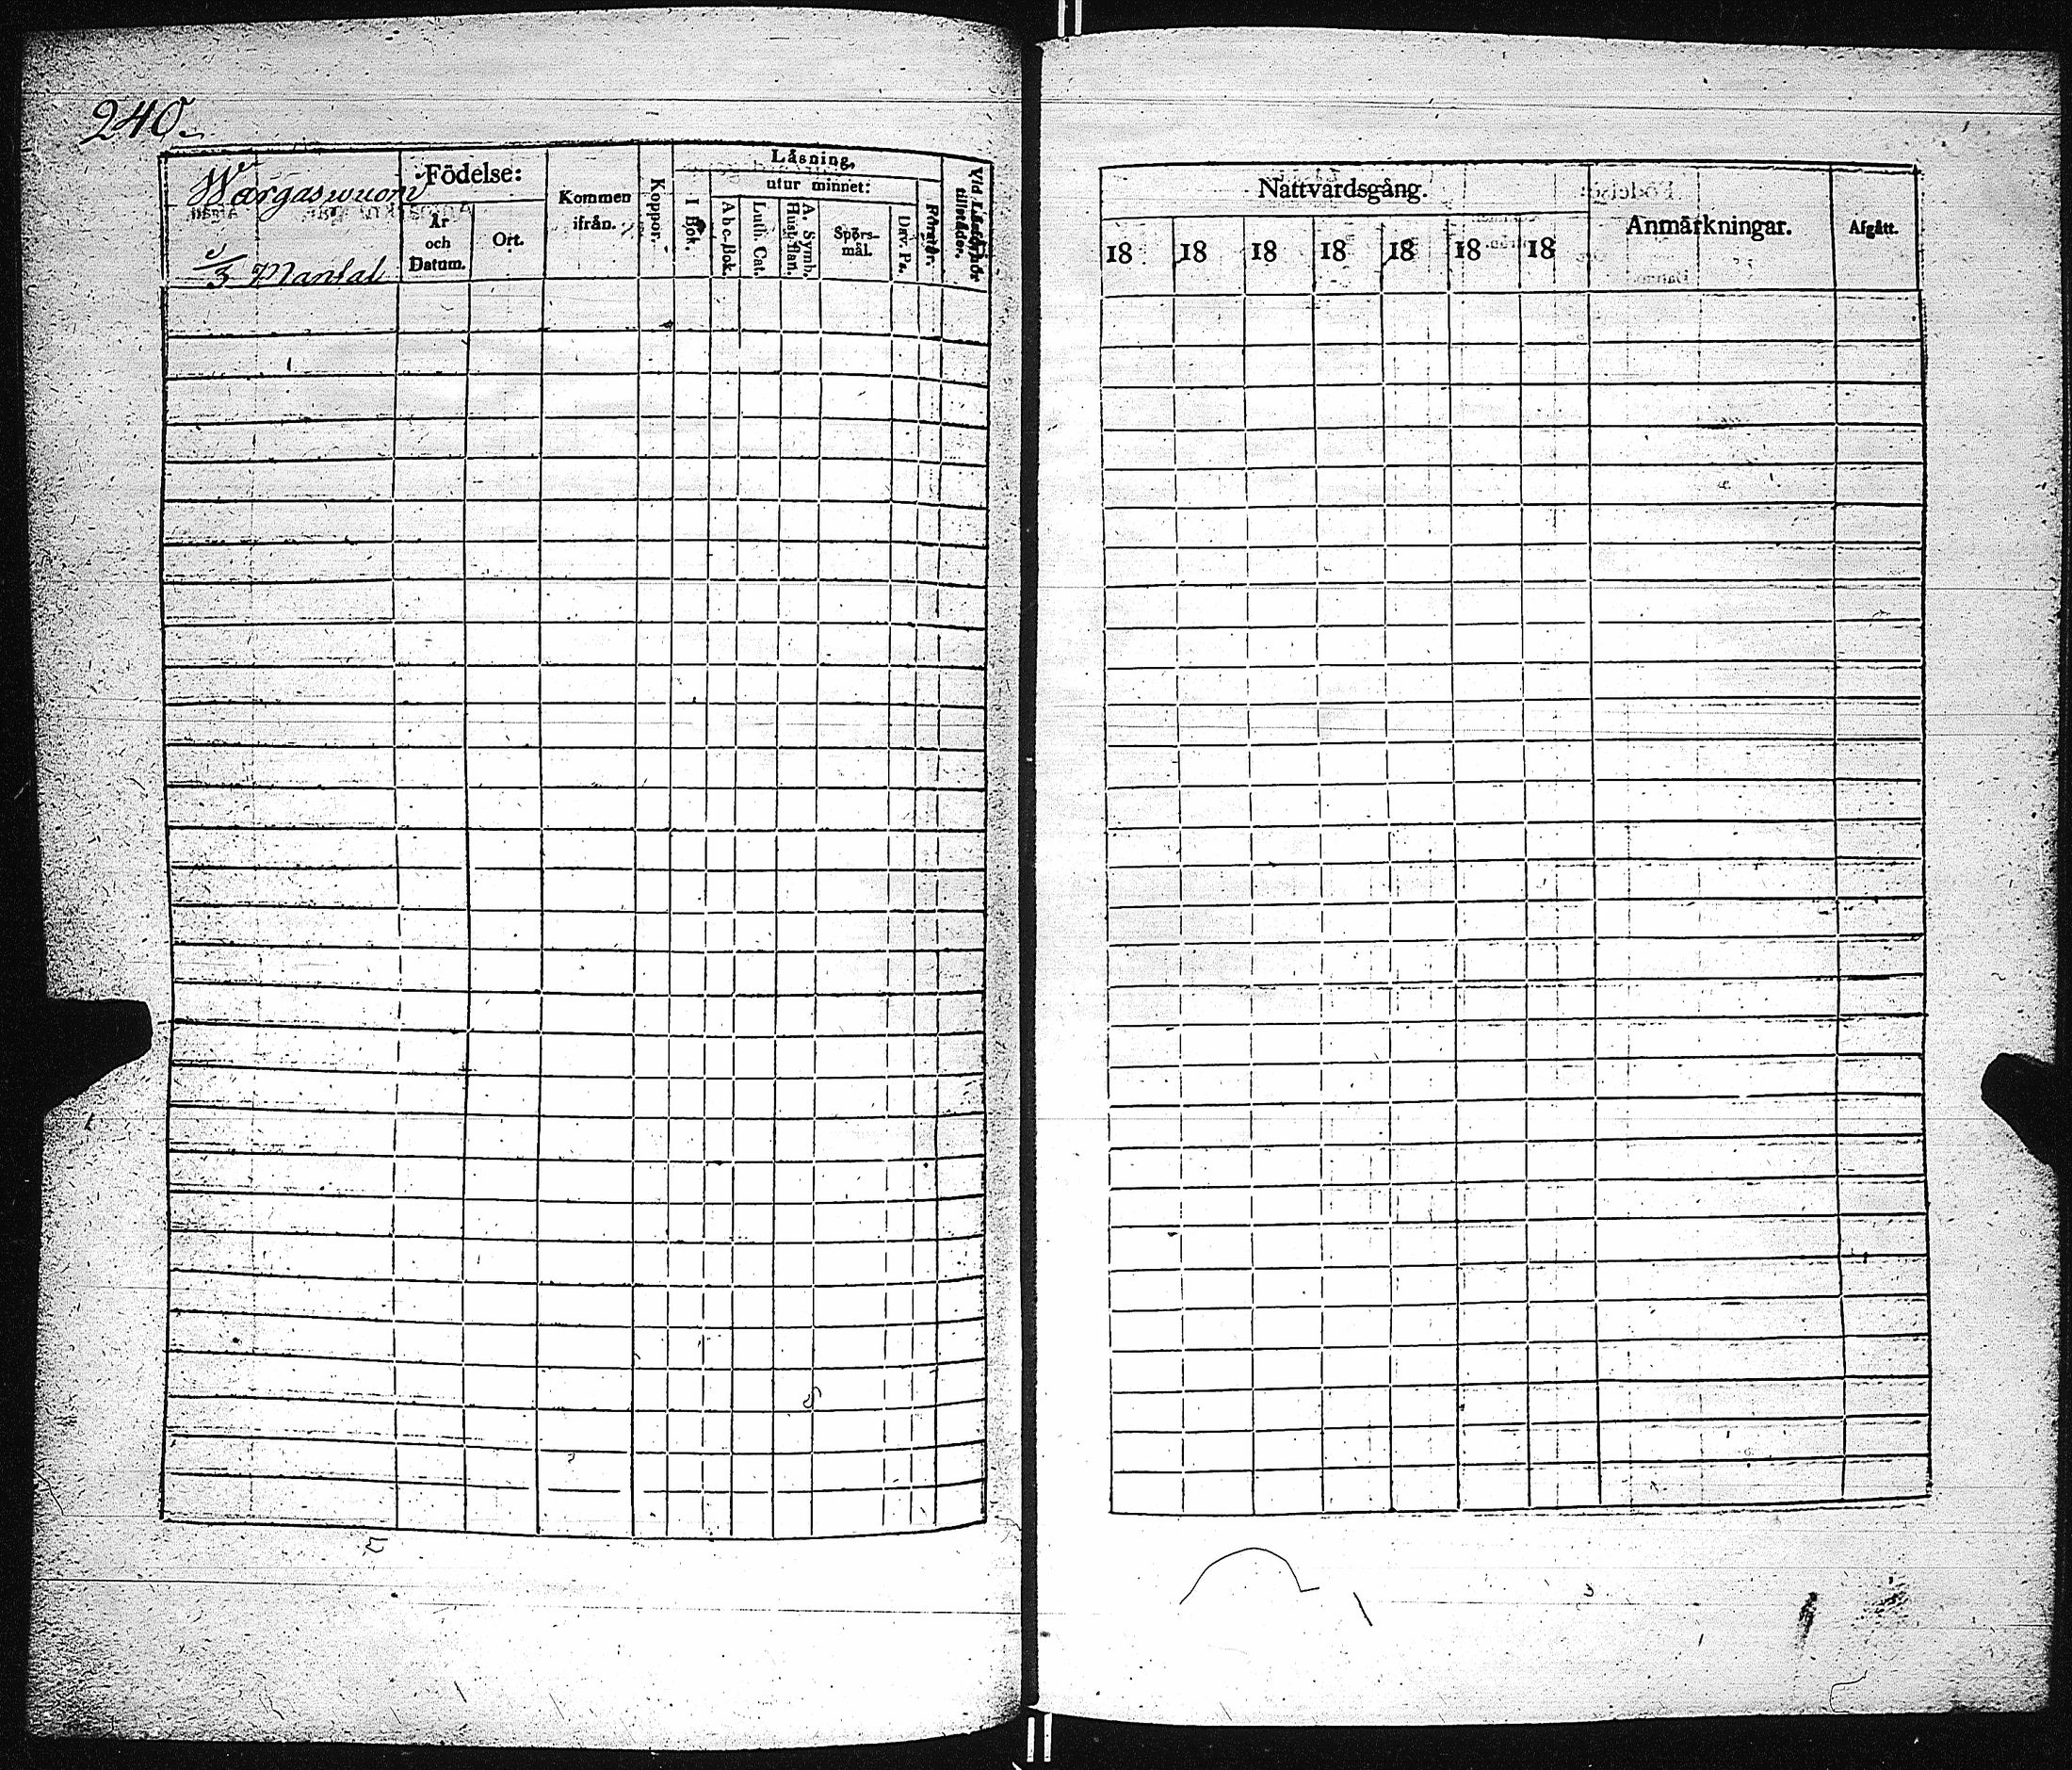 240.
Wargaswuori
Födelse:
Kommen
ifrån.
Koppor.
Läsning,
utur minnet:
I Bok.
Abc-Bok.
Luth. Cat.
A. Symb.
Hust-flan.
Spörs-
mål.
Dav. Ps.
Förstår.
Vid Läsförhör
tillstädes.
År
och
Datum.
Ort.
Mantal
Nattvardsgång.
Anmärkningar.
Afgått.
18 18 18 18 18 18 18